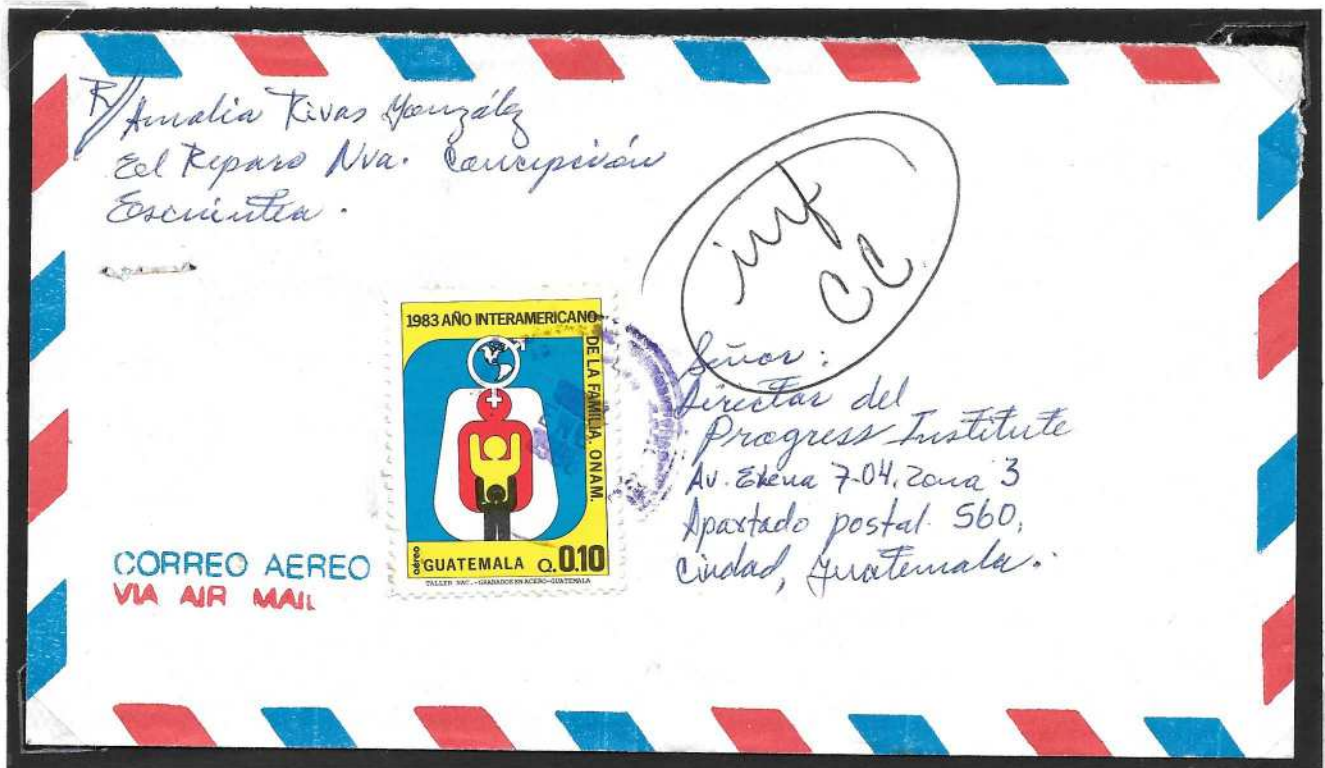 R/ Amalia Rivas González
El Reparo Nva. Concepción
Escuintla.
inf
CC
1983 AÑO INTERAMERICANO
DE LA FAMILIA. ONAM.
aéreo
GUATEMALA Q.0.10
TALLER NAC.-GRABADOS EN ACERO-GUATEMALA
Señor:
Director del
Progress Institute
Av. Elena 7-04, zona 3
Apartado postal 560,
Ciudad, Guatemala.
CORREO AEREO
VIA AIR MAIL